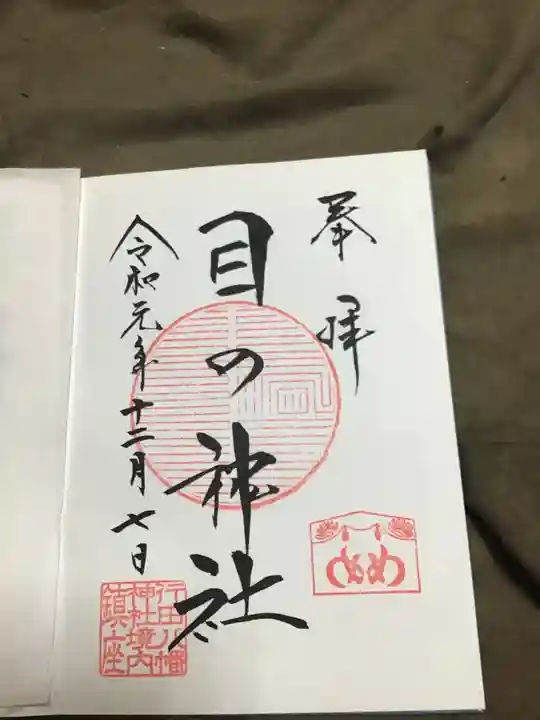 奉拝
目の神社
令和元年十二月七日
めめ
行田八幡
神社境内
鎮座